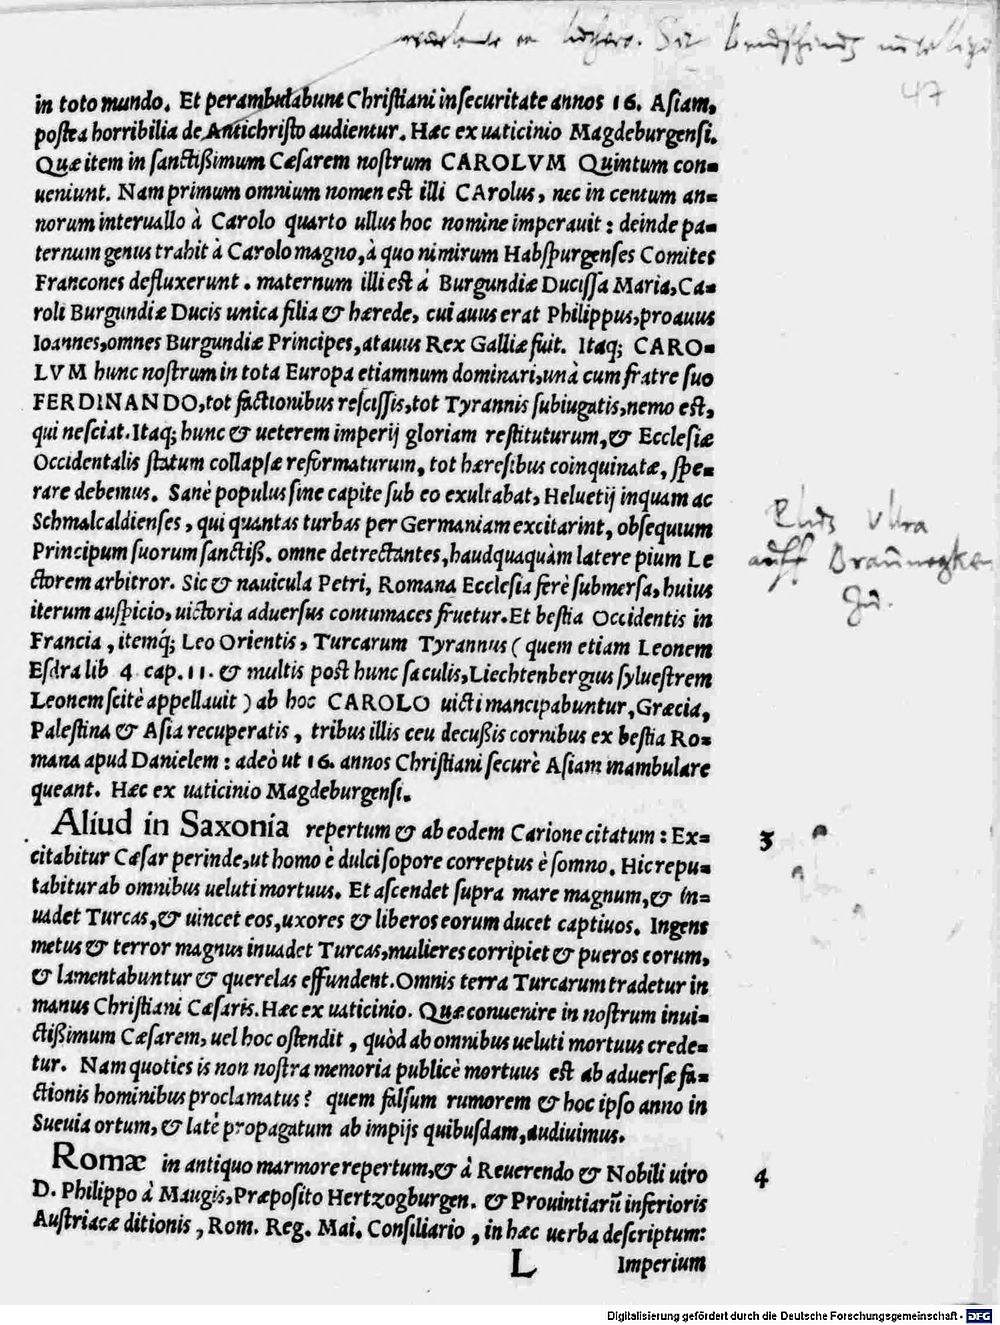 47
in toto mundo. Et perambulabunt Christiani in securitate annos 16. Asiam,
postea horribilia de Antichristo audientur. Hæc ex uaticinio Magdeburgensi.
Quæ item in sanctißimum Cæsarem nostrum CAROLVM Quintum con=
ueniunt. Nam primum omnium nomen est illi CArolus, nec in centum an=
norum interuallo à Carolo quarto ullus hoc nomine imperauit: deinde pa=
ternum genus trahit à Carolo magno, à quo nimirum Habspurgenses Comites
Francones defluxerunt. maternum illi est à Burgundiæ Ducissa Maria, Ca=
roli Burgundiæ Ducis unica filia & hærede, cui auus erat Philippus, proauus
Ioannes, omnes Burgundiæ Principes, atauus Rex Galliæ fuit. Itaq; CARO=
LVM hunc nostrum in tota Europa etiamnum dominari, unà cum fratre suo
FERDINANDO, tot factionibus rescissis, tot Tyrannis subiugatis, nemo est,
qui nesciat. Itaq; hunc & ueterem imperij gloriam restituturum, & Ecclesiæ
Occidentalis statum collapsæ reformaturum, tot hæresibus coinquinatæ, spe=
rare debemus. Sanè populus sine capite sub eo exultabat, Heluetij inquam ac
Schmalcaldienses, qui quantas turbas per Germaniam excitarint, obsequium
Principum suorum sanctiß. omne detrectantes, haudquaquàm latere pium Le
ctorem arbitror. Sic & nauicula Petri, Romana Ecclesia ferè submersa, huius
iterum auspicio, uictoria aduersus contumaces fruetur. Et bestia Occidentis in
Francia, itemq́; Leo Orientis, Turcarum Tyrannus ( quem etiam Leonem
Esdra lib 4 cap. 11. & multis post hunc sæculis, Liechtenbergius syluestrem
Leonem scitè appellauit ) ab hoc CAROLO uicti mancipabuntur, Græcia,
Palestina & Asia recuperatis, tribus illis ceu decußis cornibus ex bestia Ro=
mana apud Danielem: adeò ut 16. annos Christiani securè Asiam inambulare
queant. Hæc ex uaticinio Magdeburgensi.
Aliud in Saxonia repertum & ab eodem Carione citatum: Ex= 3
citabitur Cæsar perinde, ut homo è dulci sopore correptus è somno. Hic repu=
tabitur ab omnibus ueluti mortuus. Et ascendet supra mare magnum, & in=
uadet Turcas, & uincet eos, uxores & liberos eorum ducet captiuos. Ingens
metus & terror magnus inuadet Turcas, mulieres corripiet & pueros eorum,
& lamentabuntur & querelas effundent. Omnis terra Turcarum tradetur in
manus Christiani Cæsaris. Hæc ex uaticinio. Quæ conuenire in nostrum inui=
ctißimum Cæsarem, uel hoc ostendit, quòd ab omnibus ueluti mortuus crede=
tur. Nam quoties is non nostra memoria publicè mortuus est ab aduersæ fa=
ctionis hominibus proclamatus? quem falsum rumorem & hoc ipso anno in
Sueuia ortum, & latè propagatum ab impijs quibusdam, audiuimus.
Romæ in antiquo marmore repertum, & à Reuerendo & Nobili uiro 4
D. Philippo à Maugis, Præposito Hertzogburgen. & Prouintiarũ inferioris
Austriacæ ditionis, Rom. Reg. Mai. Consiliario, in hæc uerba descriptum:
L Imperium
Digitalisierung gefördert durch die Deutsche Forschungsgemeinschaft - DFG